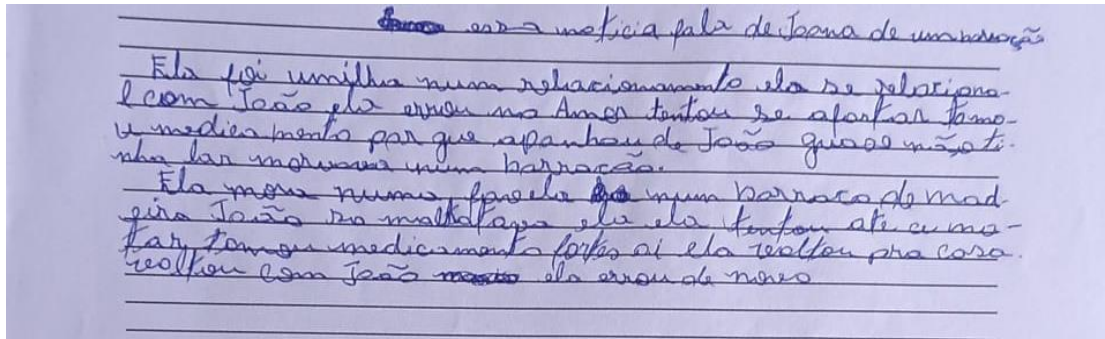 essa noticia fala de Joana de um barracão
Ela foi umilha num relacionamento ela se relaciona-
l com João ela errou no Amor tentou se afastar tomo-
u medica mento por que apanhou de João quase não ti-
nha lar morava num barracão.
Ela mora numa favela num barraco de mad-
eira João so maltratava ela ela tentou ate cu ma-
tar, tomou medicamento fortes ai ela vooltou pra casa.
vooltou com João ela errou de novo